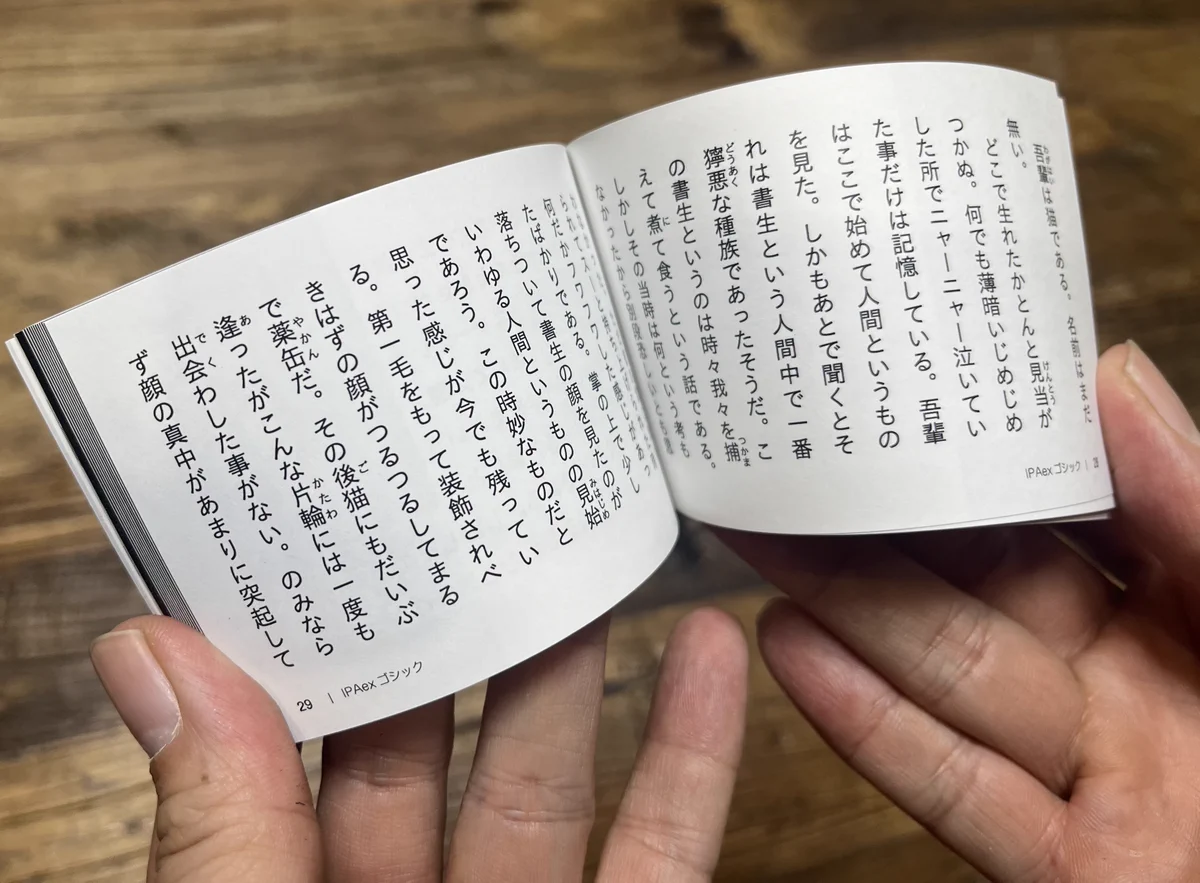 わがはい
吾輩は猫である。名前はまだ
無い。
けんとう
どこで生れたかとんと見当が
つかぬ。何でも薄暗いじめじめ
した所でニャーニャー泣いてい
た事だけは記憶している。吾輩
はここで始めて人間というもの
を見た。しかもあとで聞くとそ
れは書生という人間中で一番
どうあく
獰悪な種族であったそうだ。こ
つかま
の書生というのは時々我々を捕
に
えて煮て食うという話である。
しかしその当時は何という考も
なかったから別段恐しいとも思
IPAex ゴシック | 28
られてスーと持ち上げられた
何だかフワフワした感じがあっ
たばかりである。掌の上で少し
落ちついて書生の顔を見たのが
みはじめ
いわゆる人間というものの見始
であろう。この時妙なものだと
思った感じが今でも残ってい
る。第一毛をもって装飾されべ
きはずの顔がつるつるしてまる
やかん ご
で薬缶だ。その後猫にもだいぶ
あ かたわ
逢ったがこんな片輪には一度も
でく
出会わした事がない。のみなら
ず顔の真中があまりに突起して
29 | IPAex ゴシック